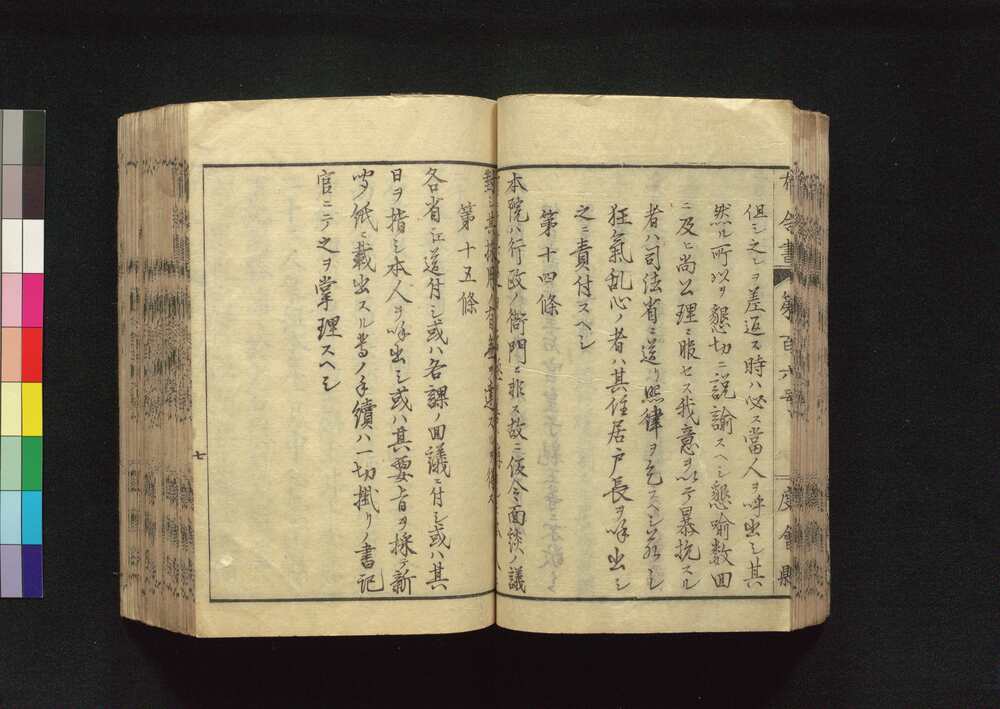 令書 第百六号 度會縣
但シ之レヲ差返ス時ハ必ス當人ヲ呼出シ其
然ル所以ヲ懇切ニ説諭スヘシ懇喩数回
ニ及ヒ尚公理ニ服セス我意ヲ以テ暴抗スル
者ハ司法省ニ送リ照律ヲ乞スヘシ若シ
狂氣乱心ノ者ハ其住居戸長ヲ呼出シ
之ニ責付スヘシ
第十四條
本院ハ行政ノ衙門ニ非ス故ニ仮令面談ノ議
對シ其採用ノ有無ヲ
第十五條
各省江送付シ或ハ各課ノ回議ニ付シ或ハ其
日ヲ指シ本人ヲ呼出シ或ハ其要旨ヲ採テ新
聞紙ニ載出スル等ノ手續ハ一切掛リノ書記
官ニテ之ヲ掌理スヘシ
七